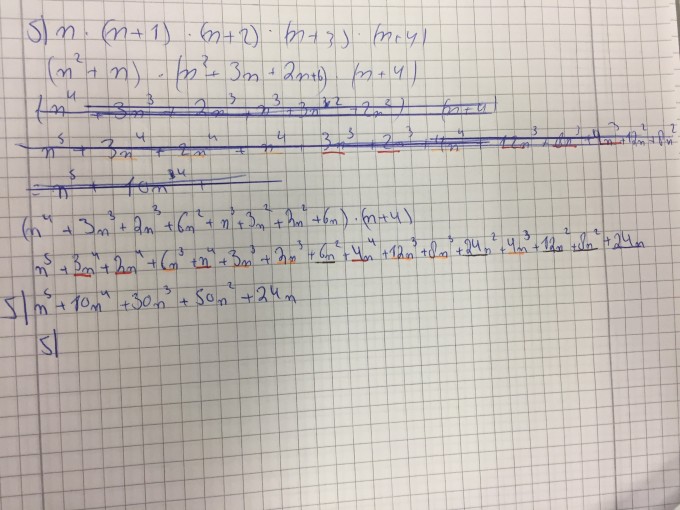 5| n · (n+1) · (n+2) · (n+3) · (n+4)
(n² + n) · (n² + 3n + 2n+6) · (n+4)
(n⁴ + 3n³ + 2n³ + n³ + 3n² + 2n²) (n+4)
n⁵ + 3n⁴ + 2n⁴ + n⁴ + 3n³ + 2n³ + 4n⁴ + 12n³ + 8n³ + 4n³ + 12n² + 8n²
= n⁵ + 10n⁴ +
(n⁴ + 3n³ + 2n³ + 6n² + n³ + 3n² + 2n² + 6n) · (n+4)
n⁵ + 3n⁴ + 2n⁴ + 6n³ + n⁴ + 3n³ + 2n³ + 6n² + 4n⁴ + 12n³ + 8n³ + 24n² + 4n³ + 12n² + 8n² + 24n
5| n⁵ + 10n⁴ + 30n³ + 50n² + 24n
5|